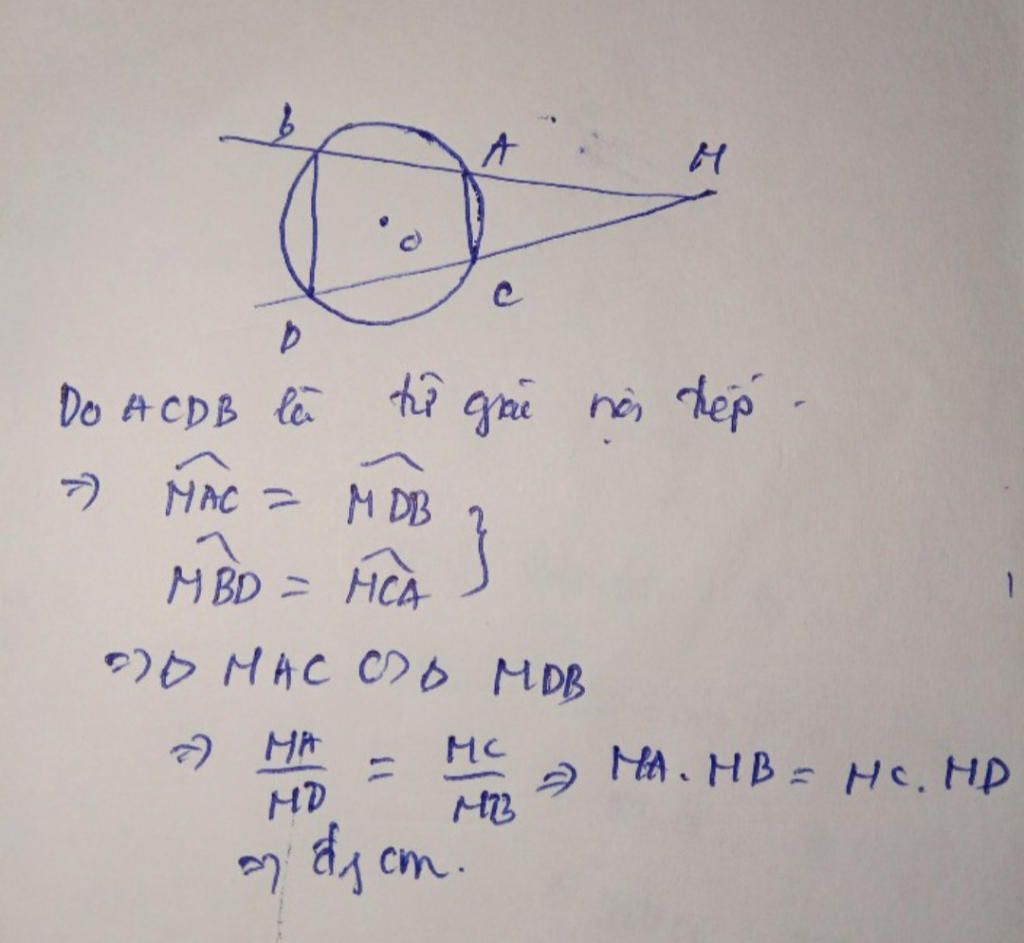 B A M
O
C
D
Do ACDB là tứ giác nội tiếp.
⇒ MAC = MDB
MBD = MCA }
⇒ Δ MAC ∽ Δ MDB
⇒ MA/MD = MC/MB ⇒ MA.MB = MC.MD
⇒ đpcm.